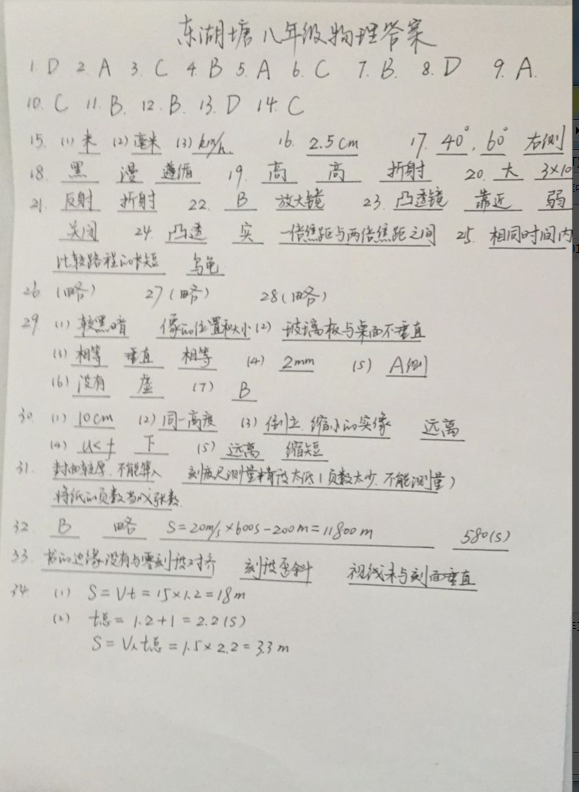 东湖塘八年级物理答案
1. D 2. A 3. C 4. B 5. A 6. C 7. B. 8. D 9. A.
10. C 11. B. 12. B. 13. D 14. C
15. (1) 米 (2) 毫米 (3) km/h. 16. 2.5cm 17. 40°. 60° 右侧
18. 黑 漫 遵循 19. 高 高 折射 20. 大 3×10
21. 反射 折射 22. B 放大镜 23. 凸透镜 靠近 弱
关闭 24. 凸透 实 一倍焦距与两倍焦距之间 25. 相同时间内
比较路程的长短 乌龟
26 (略) 27 (略) 28 (略)
29 (1) 较黑暗 像的位置和大小 (2) 玻璃板与桌面不垂直
(3) 相等 垂直 相等 (4) 2mm (5) A侧
(6) 没有 虚 (7) B
30 (1) 10cm (2) 同一高度 (3) 倒立 缩小的实像 远离
(4) u<f 下 (5) 远离 缩短
31. 封面较厚, 不能算入 刻度尺测量精度太低(页数太少, 不能测量)
将纸的页数当成张数
32 B 略 S=20m/s×600s-200m=11800m 580(s)
33. 书的边缘没有与零刻度对齐 刻度歪斜 视线未与刻面垂直
34 (1) S=Vt=15×1.2=18m
(2) t总=1.2+1=2.2(s)
S=V人t总=1.5×2.2=3.3m